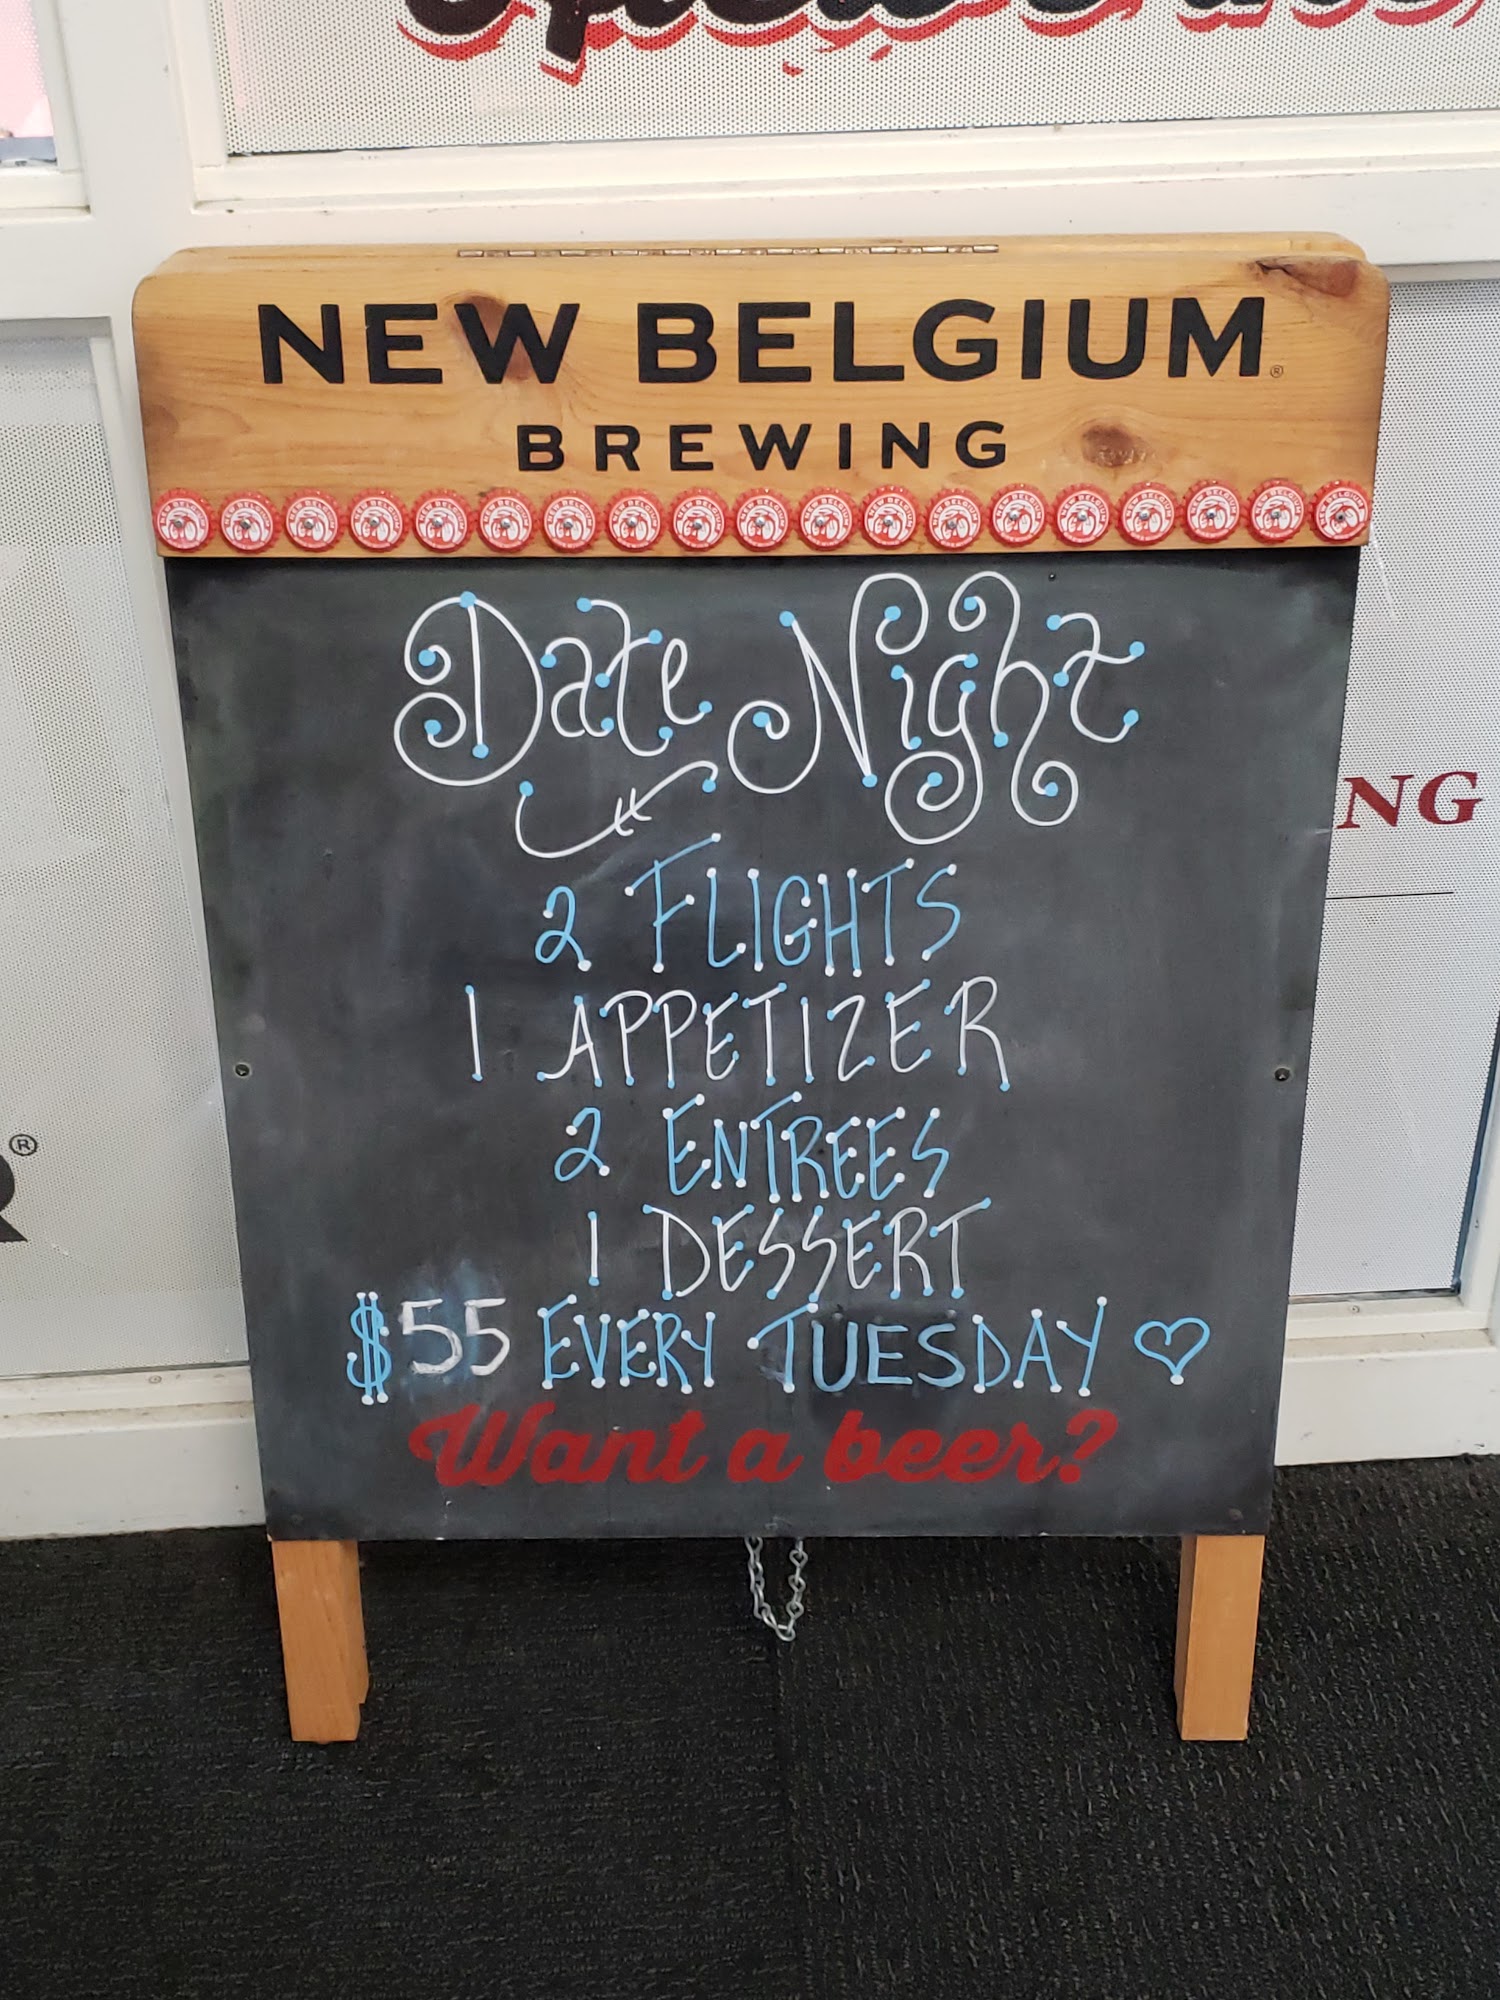 NEW BELGIUM®
BREWING
Date Night
2 FLIGHTS
1 APPETIZER
2 ENTREES
1 DESSERT
$55 EVERY TUESDAY
Want a beer?
NG
R®